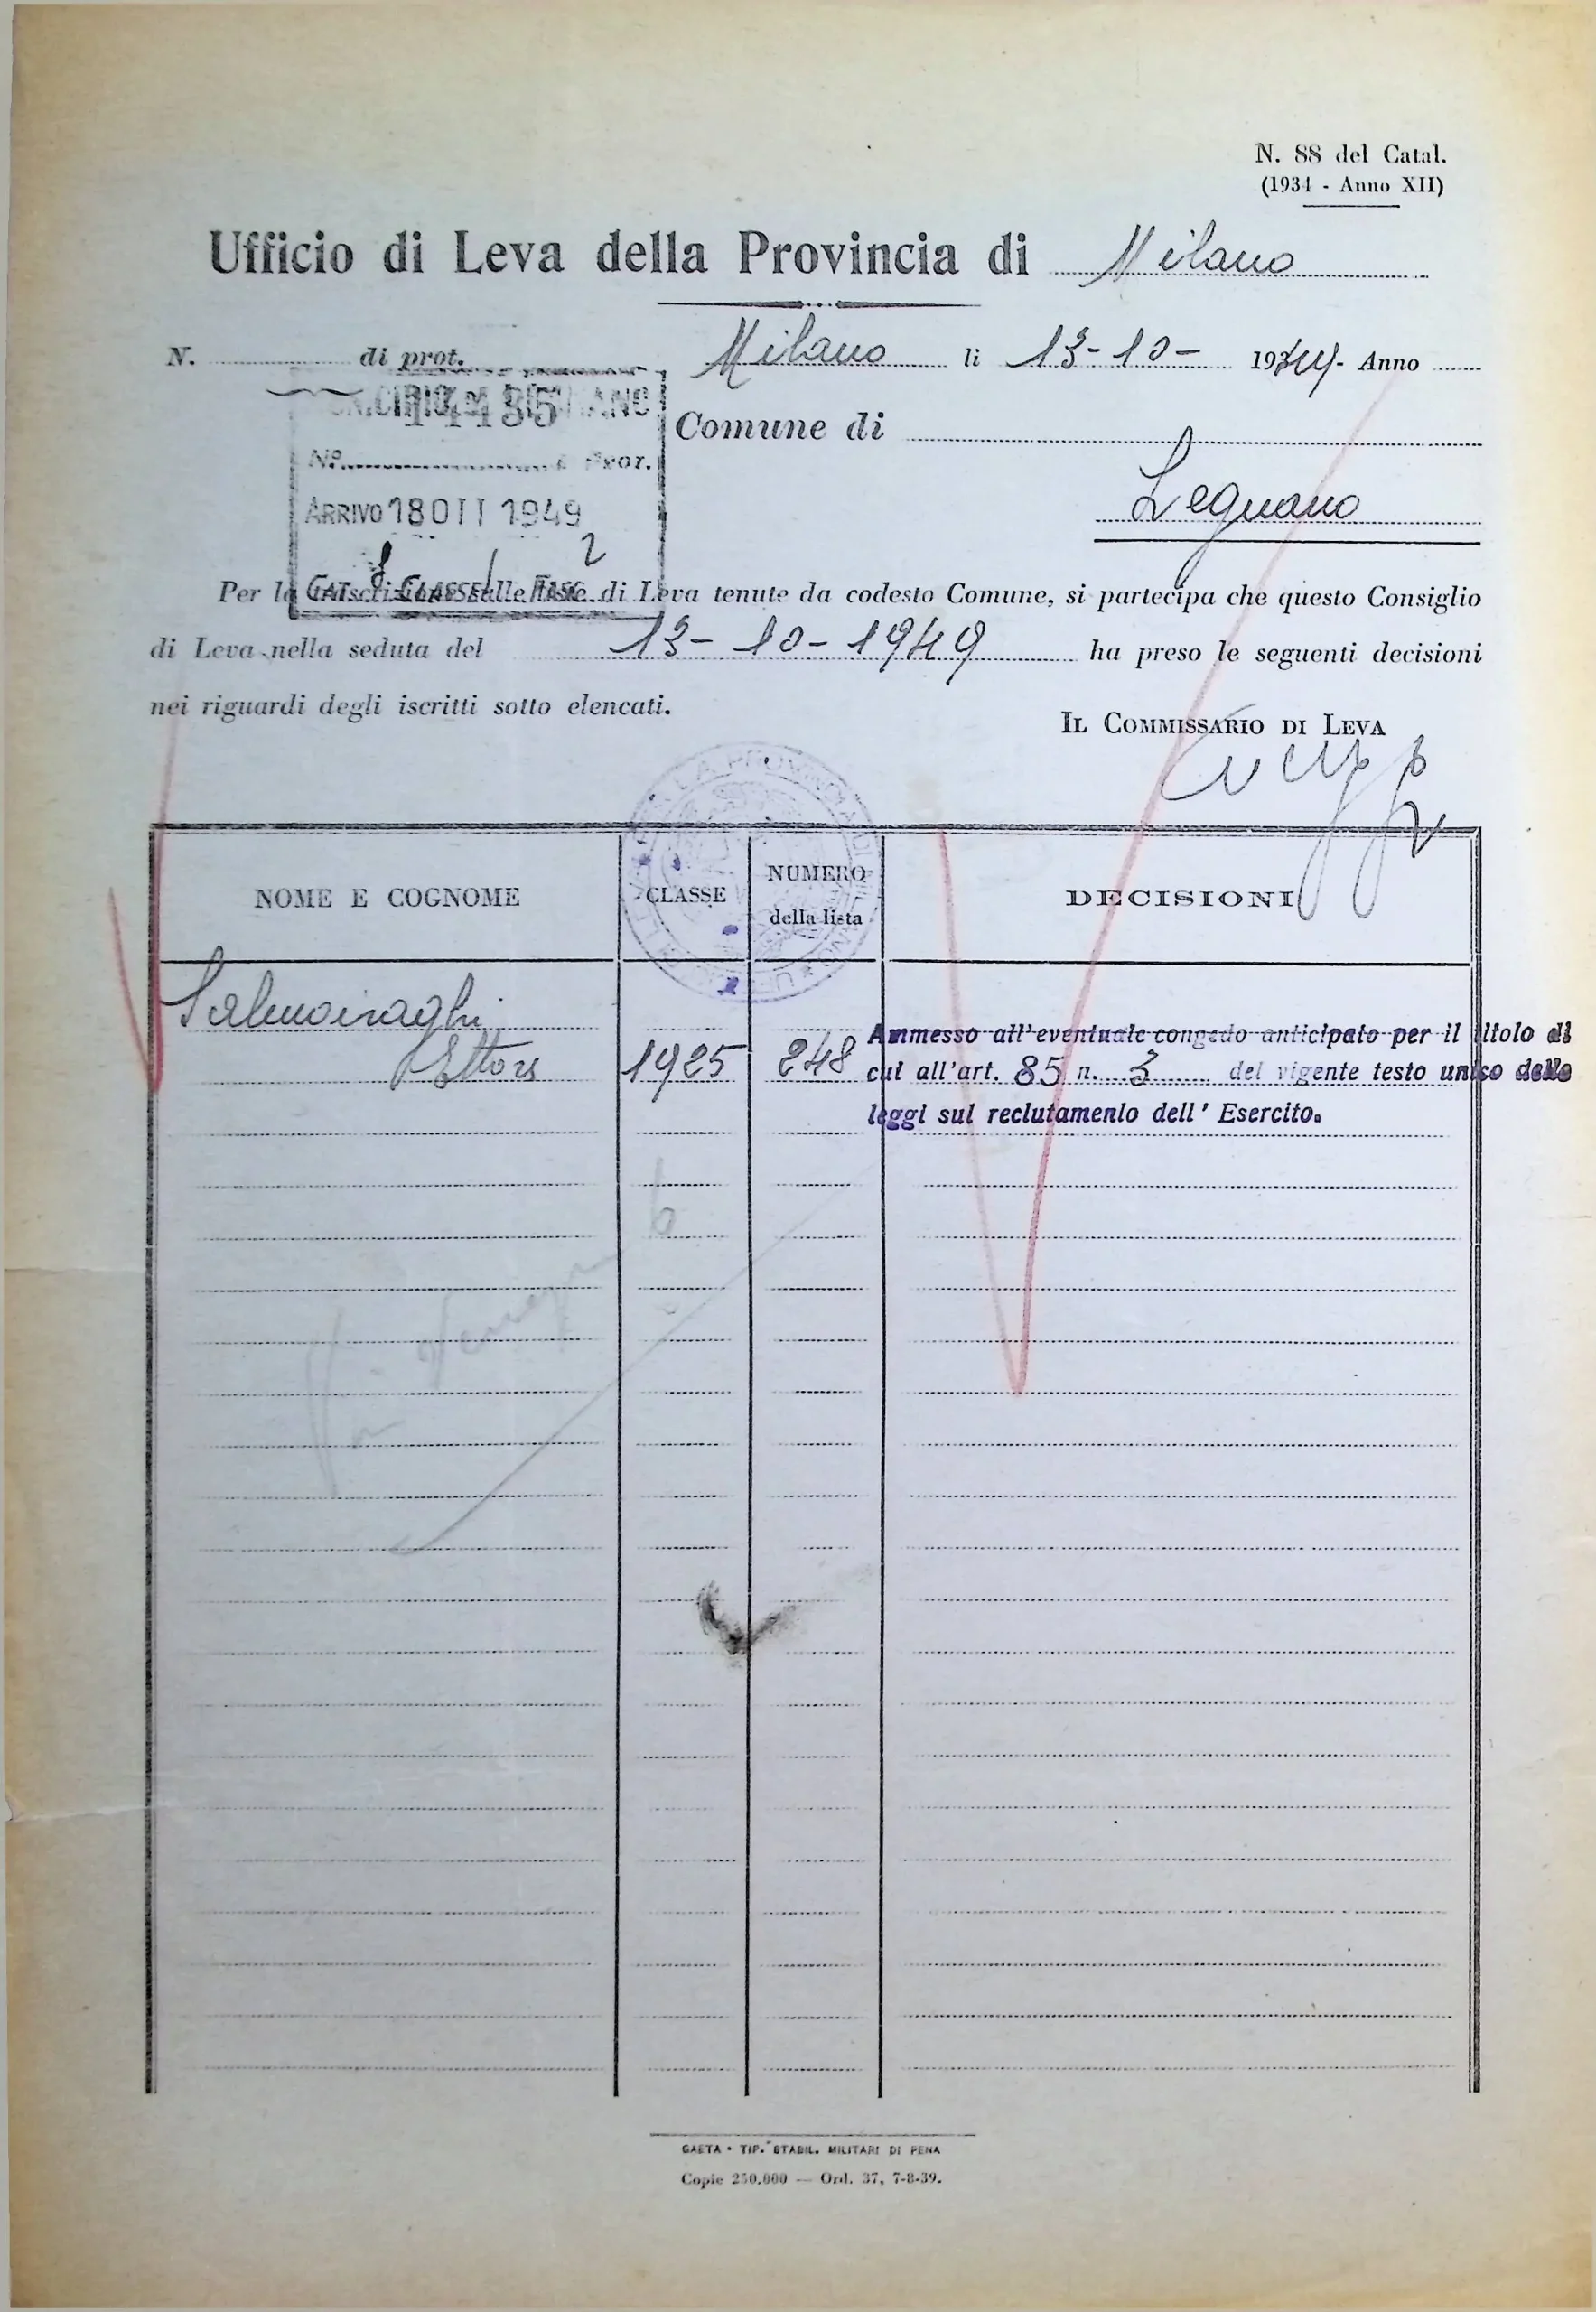 N. 88 del Catal.
(1934 - Anno XII)
Ufficio di Leva della Provincia di Milano
N. di prot.
Milano li 13-10- 1949- Anno
14485
Comune di
Nº Prot.
ARRIVO 18 OTT 1949
Legnano
CAT. 8 CLASSE 1 FASC. 2
Per la trascrizione sulle liste di Leva tenute da codesto Comune, si partecipa che questo Consiglio
di Leva nella seduta del 13-10-1949 ha preso le seguenti decisioni
nei riguardi degli iscritti sotto elencati.
IL COMMISSARIO DI LEVA
NOME E COGNOME
CLASSE
NUMERO
della lista
DECISIONI
Salmoiraghi
Ettore 1925 248
Ammesso all'eventuale congedo anticipato per il titolo di
cui all'art. 85 n. 3 del vigente testo unico delle
leggi sul reclutamento dell' Esercito.
GAETA • TIP. STABIL. MILITARI DI PENA
Copie 250.000 — Ord. 37, 7-8-39.